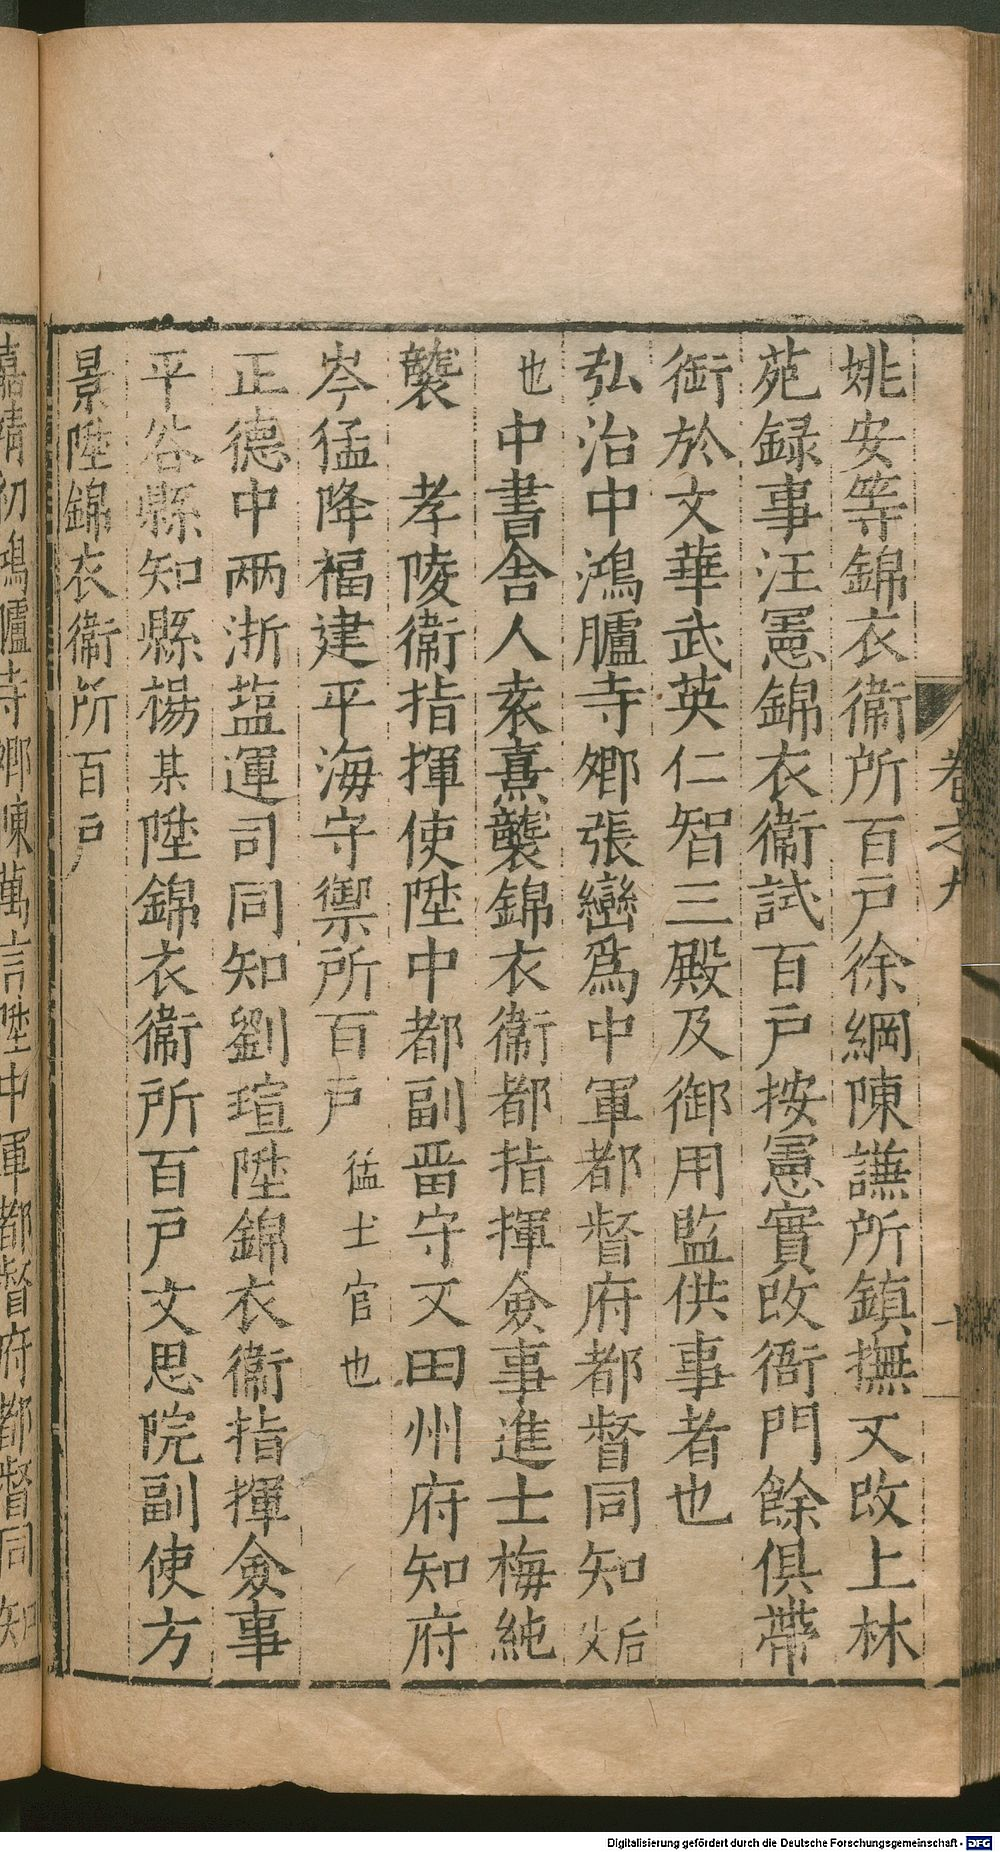 卷之九
姚安等錦衣衞所百戸徐綱陳謙所鎮撫又改上林
苑録事汪憲錦衣衞試百戸按憲實改衙門餘俱帶
銜於文華武英仁智三殿及御用監供事者也
弘治中鴻臚寺鄉張巒爲中軍都督府都督同知后父
也中書舍人袁熹襲錦衣衞都指揮僉事進士梅純
襲　孝陵衞指揮使陞中都副畱守又田州府知府
岑猛降福建平海守禦所百戸猛土官也
正德中两浙塩運司同知劉瑄陞錦衣衞指揮僉事
平谷縣知縣楊某陞錦衣衞所百戸文思院副使方
景陞錦衣衞所百戸
嘉靖初鴻臚寺鄉陳萬言陞中軍都督府都督同知
Digitalisierung gefördert durch die Deutsche Forschungsgemeinschaft - DFG